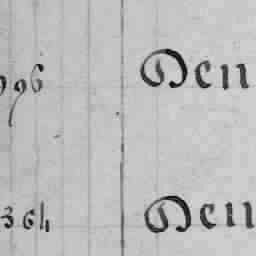 996 Den
364 Den